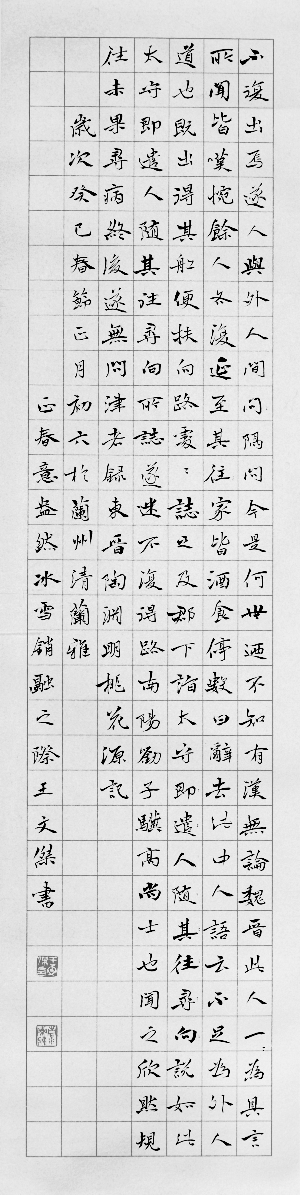 不復出焉遂人與外人間問隔問今是何世迺不知有漢無論魏晉此人一為具言
所聞皆嘆惋餘人各復延至其往家皆酒食停數日辭去此中人語云不足為外人
道也既出得其船便扶向路處〻誌之及郡下詣太守即遣人隨其往尋向說如此
太守即遣人隨其往尋向所誌遂迷不復得路南陽劉子驥高尚士也聞之欣然規
往未果尋病終後遂無問津者錄東晉陶淵明桃花源記
歲次癸巳春節正月初六於蘭州清蘭雅
正春意盎然冰雪銷融之際王文傑書